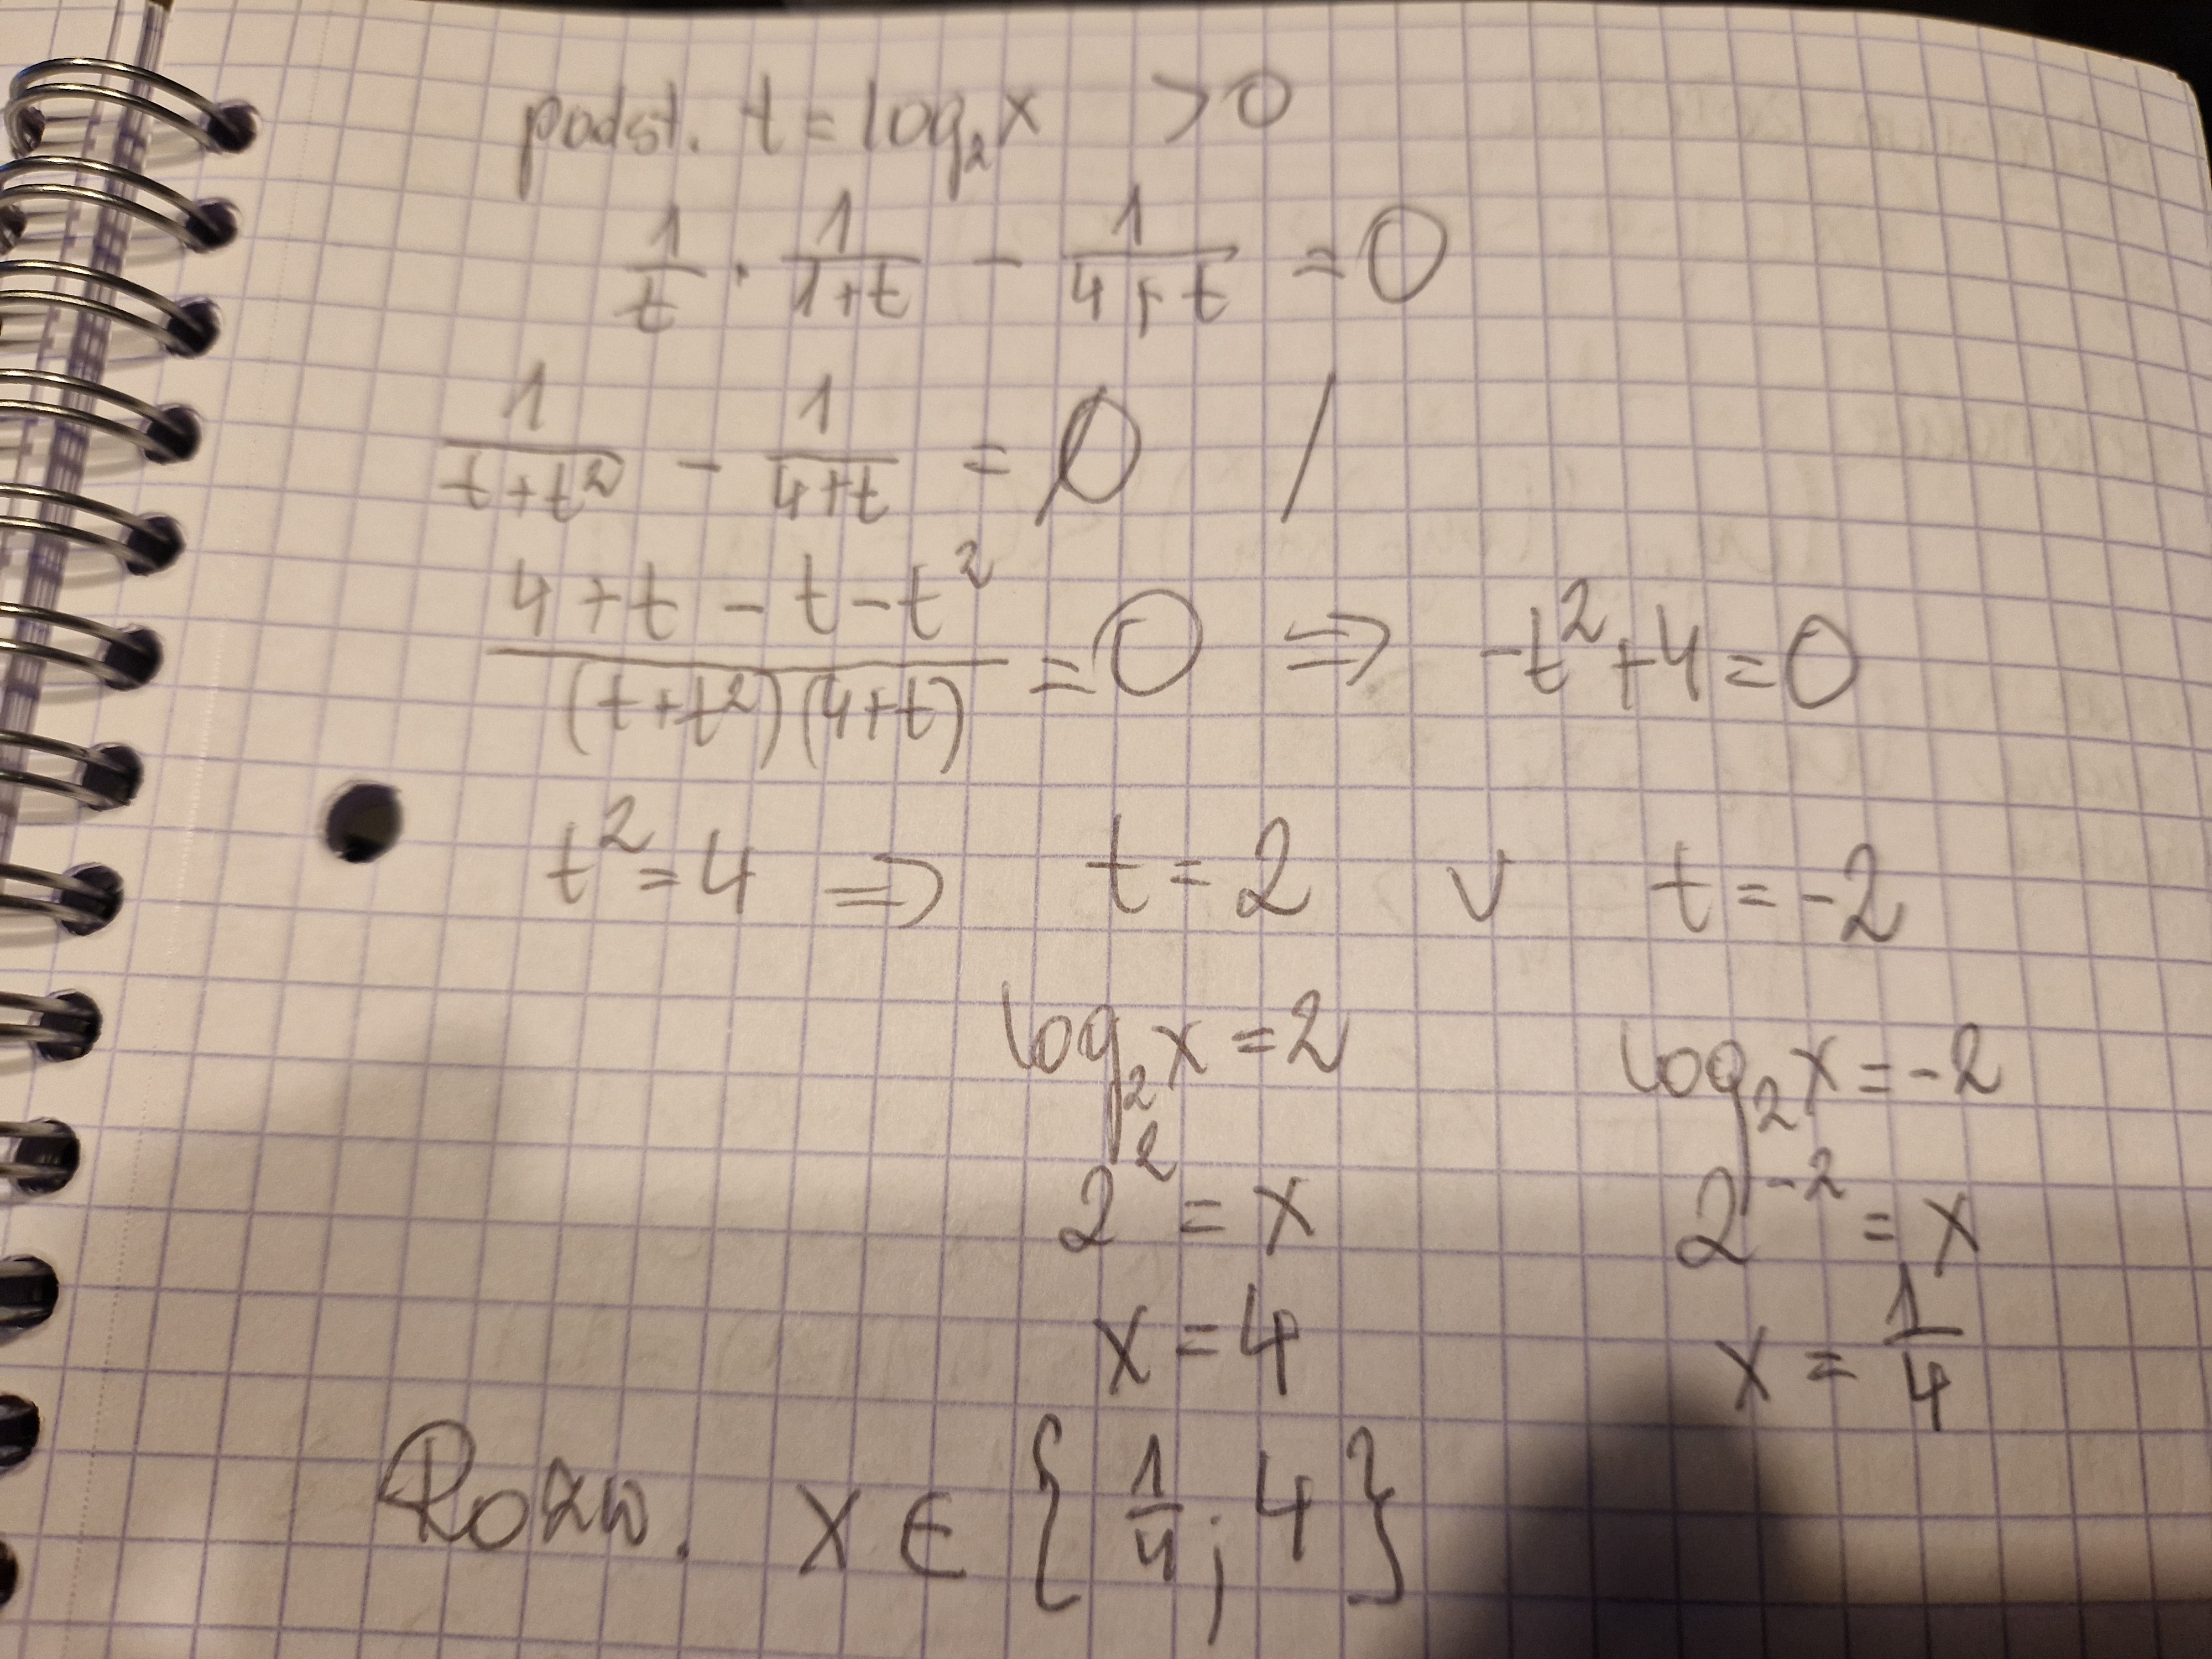 podst. t = log₂x > 0
1/t · 1/(1+t) - 1/(4+t) = 0
1/(t+t²) - 1/(4+t) = 0 /
(4+t-t-t²)/((t+t²)(4+t)) = 0 ⇒ -t²+4=0
t² = 4 ⇒ t = 2 ∨ t = -2
log₂x = 2 log₂x = -2
2² = x 2⁻² = x
x = 4 x = 1/4
Rozw. x ∈ {1/4; 4}